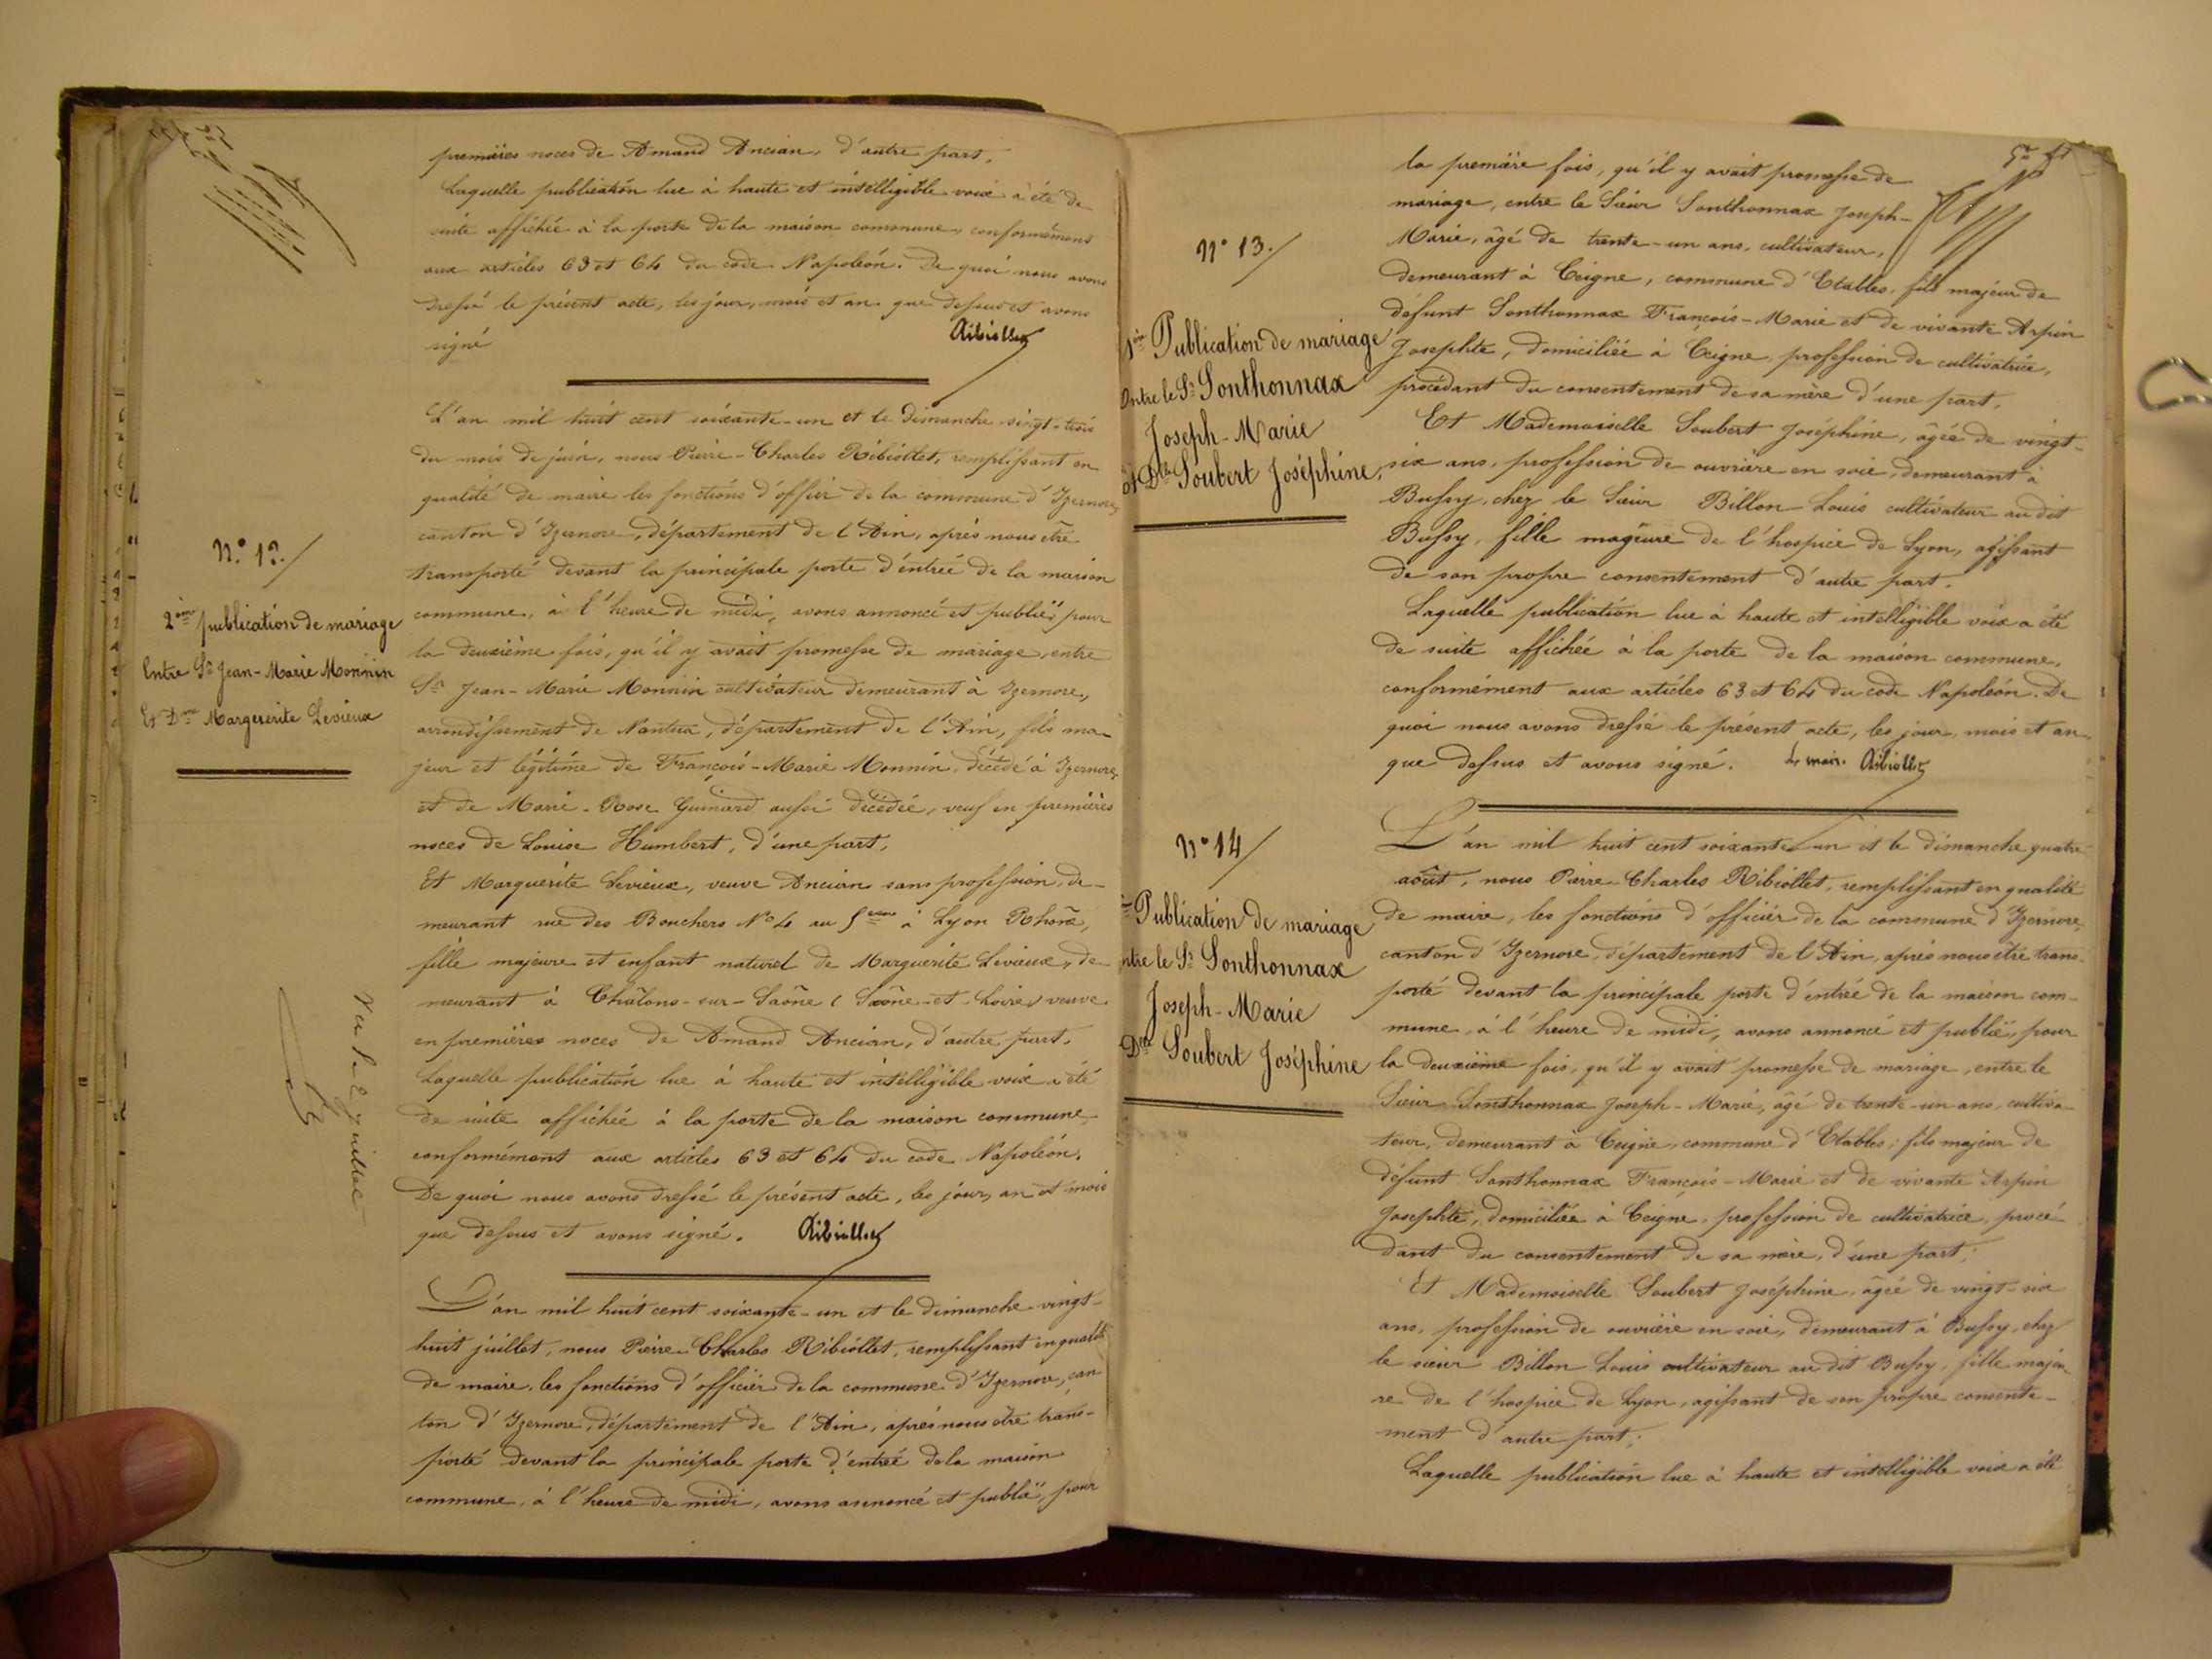 premières noces de Amand Ancian, d'autre part.
Laquelle publication lue à haute et intelligible voix a été de
suite affichée à la porte de la maison commune, conformément
aux articles 63 et 64 du code Napoléon. De quoi nous avons
dressé le présent acte, les jour, mois et an que dessus et avons
signé
Ribiollet
L'an mil huit cent soixante-un et le dimanche vingt-trois
du mois de juin, nous Pierre-Charles Ribiollet, remplissant en
qualité de maire les fonctions d'offier de la commune d'Izernore,
canton d'Izernore, département de l'Ain, après nous être
transporté devant la principale porte d'entrée de la maison
commune, à l'heure de midi, avons annoncé et publié, pour
la deuxième fois, qu'il y avait promesse de mariage, entre
Sr Jean-Marie Monnin cultivateur demeurant à Izernore,
arrondissement de Nantua, département de l'Ain, fils ma-
jeur et légitime de François-Marie Monnin, décédé à Izernore,
et de Marie-Rose Guinard aussi décédée, veuf en premières
noces de Louise Humbert, d'une part,
Et Marguerite Levieux, veuve Ancian sans profession, de-
meurant rue des Bouchers No 4 au 5eme à Lyon Rhône,
fille majeure et enfant naturel de Marguerite Levieux, de-
meurant à Châlons-sur-Saône (Saône-et-Loire) veuve
en premières noces de Amand Ancian, d'autre part.
Laquelle publication lue à haute et intelligible voix a été
de suite affichée à la porte de la maison commune
conformément aux articles 63 et 64 du code Napoléon.
De quoi nous avons dressé le présent acte, les jour, an et mois
que dessus et avons signé. Ribiollet
L'an mil huit cent soixante-un et le dimanche vingt-
huit juillet, nous Pierre-Charles Ribiollet, remplissant en qualité
de maire, les fonctions d'officier de la commune d'Izernore, can
ton d'Izernore, département de l'Ain, après nous être trans-
porté devant la principale porte d'entrée de la maison
commune, à l'heure de midi, avons annoncé et publié, pour
N° 12.
2ème publication de mariage
Entre Sr Jean-Marie Monnin
Et Dme Marguerite Levieux
la première fois, qu'il y avait promesse de
mariage, entre le Sieur Sonthonnax Joseph-
Marie, âgé de trente-un ans, cultivateur,
demeurant à Ceigne, commune d'Etables, fils majeur de
défunt Sonthonnax François-Marie et de vivante Arpin
Josephte, domiciliée à Ceigne, profession de cultivatrice,
procédant du consentement de sa mère d'une part,
Et Mademoiselle Soubert Joséphine, âgée de vingt-
six ans, profession de ouvrière en soie, demeurant à
Bussy, chez le Sieur Billon Louis cultivateur au dit
Bussy, fille mageure de l'hospice de Lyon, agissant
de son propre consentement d'autre part.
Laquelle publication lue à haute et intelligible voix a été
de suite affichée à la porte de la maison commune,
conformément aux articles 63 et 64 du code Napoléon. De
quoi nous avons dressé le présent acte, les jour, mois et an
que dessus et avons signé. Le maire Ribiollet
L'an mil huit cent soixante-un et le dimanche quatre
août, nous Pierre-Charles Ribiollet, remplissant en qualité
de maire, les fonctions d'officier de la commune d'Izernore,
canton d'Izernore, département de l'Ain, après nous être trans-
porté devant la principale porte d'entrée de la maison com-
mune, à l'heure de midi, avons annoncé et publié, pour
la deuxième fois, qu'il y avait promesse de mariage, entre le
Sieur Sonthonnax Joseph-Marie, âgé de trente-un ans, cultiva-
teur, demeurant à Ceigne, commune d'Etables; fils majeur de
défunt Sonthonnax François-Marie et de vivante Arpin
Josephte, domiciliée à Ceigne, profession de cultivatrice, procé-
dant du consentement de sa mère, d'une part;
Et Mademoiselle Soubert Joséphine, âgée de vingt-six
ans, profession de ouvrière en soie, demeurant à Bussy, chez
le sieur Billon Louis cultivateur au dit Bussy, fille majeu
re de l'hospice de Lyon, agissant de son propre consente-
ment d'autre part;
Laquelle publication lue à haute et intelligible voix a été
N° 13.
1ère Publication de mariage
Entre le Sr Sonthonnax
Joseph-Marie
et Dlle Soubert Joséphine,
N° 14
Publication de mariage
ntre le Sr Sonthonnax
Joseph-Marie
Dlle Soubert Joséphine